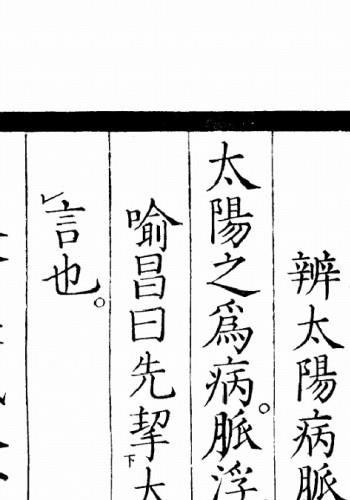 辨太陽病脈
太陽之爲病。脈浮
喻昌曰先挈下太
言也。